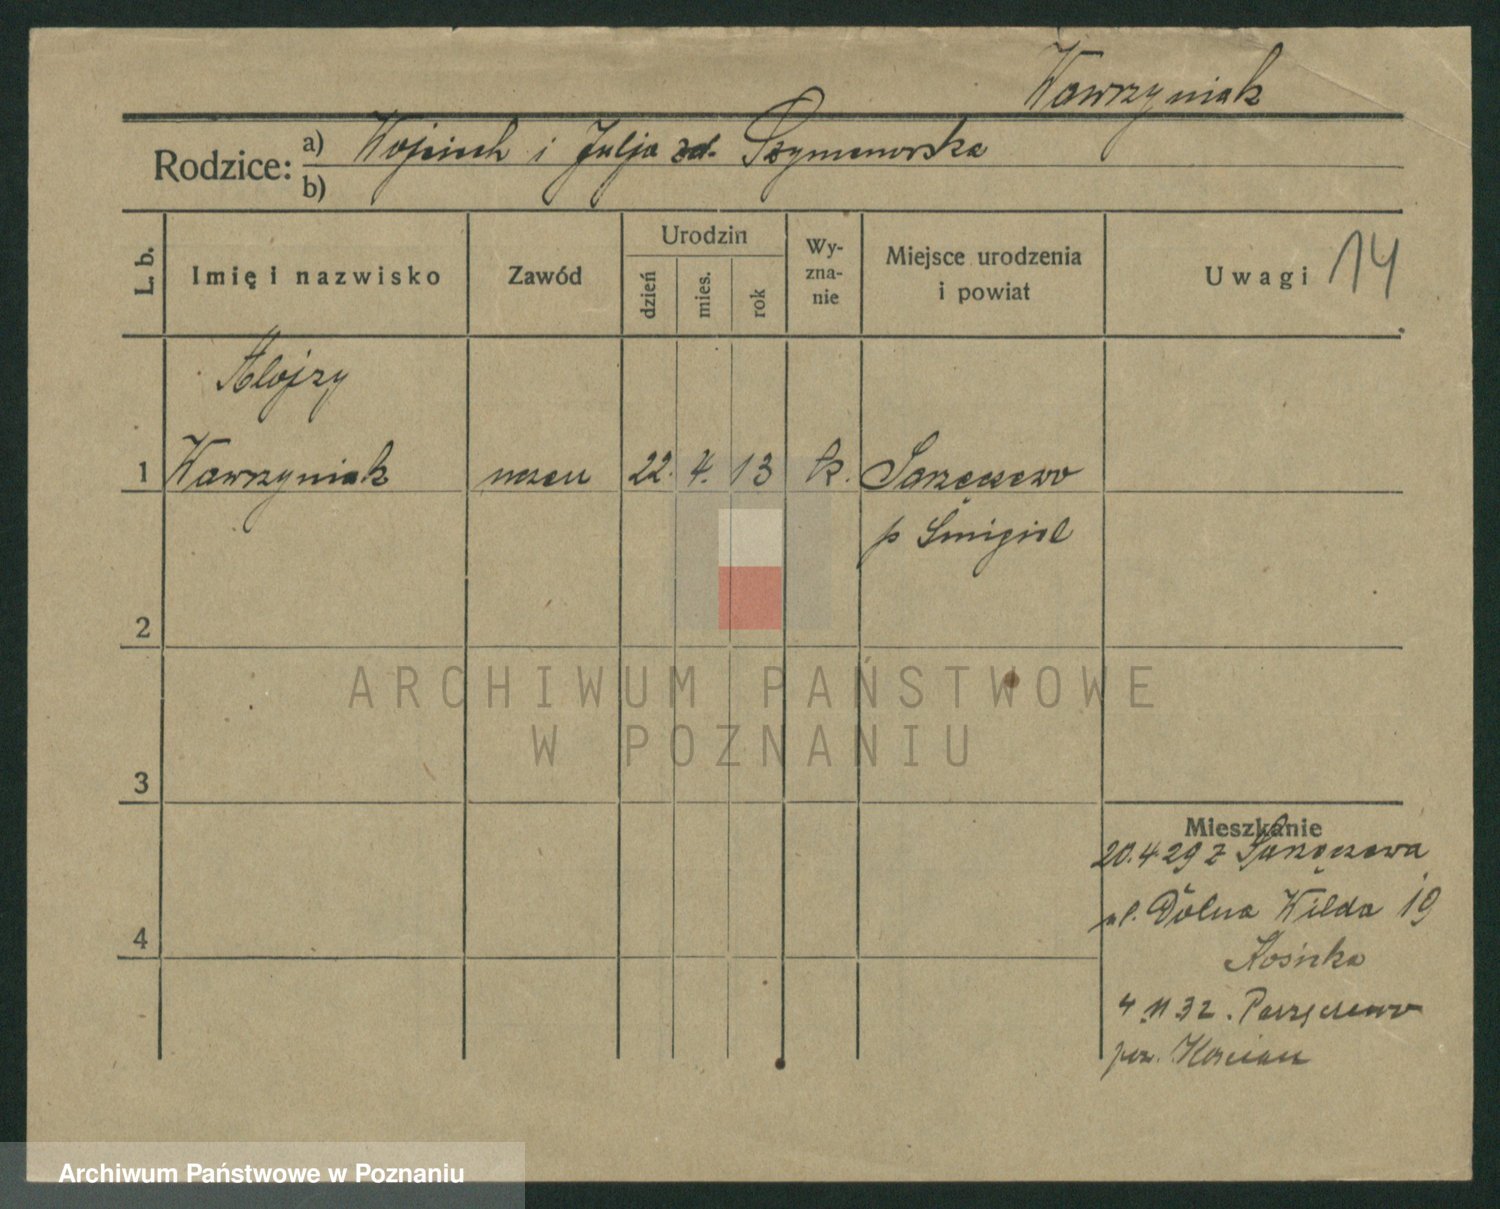 Wawrzyniak
Rodzice: a) Wojciech i Julja zd. Szymanowska
b)
L. b. Imię i nazwisko Zawód Urodzin dzień mies. rok Wy-zna-nie Miejsce urodzenia i powiat Uwagi 14
Alojzy
1 Wawrzyniak uczeń 22. 4. 13 k.
p Śmigiel
2
ARCHIWUM PAŃSTWOWE
W POZNANIU
3
Mieszkanie
20.4 29 z
ul. Dolna Wilda 19
4
4 11 32.
pow. Kościan
Archiwum Państwowe w Poznaniu